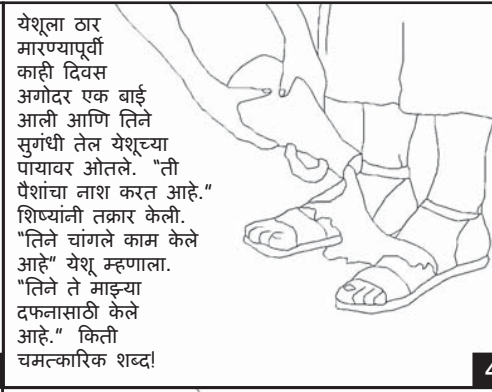 येशूला ठार
मारण्यापूर्वी
काही दिवस
अगोदर एक बाई
आली आणि तिने
सुगंधी तेल येशूच्या
पायावर ओतले. "ती
पैशांचा नाश करत आहे."
शिष्यांनी तक्रार केली.
"तिने चांगले काम केले
आहे" येशू म्हणाला.
"तिने ते माझ्या
दफनासाठी केले
आहे." किती
चमत्कारिक शब्द!
4